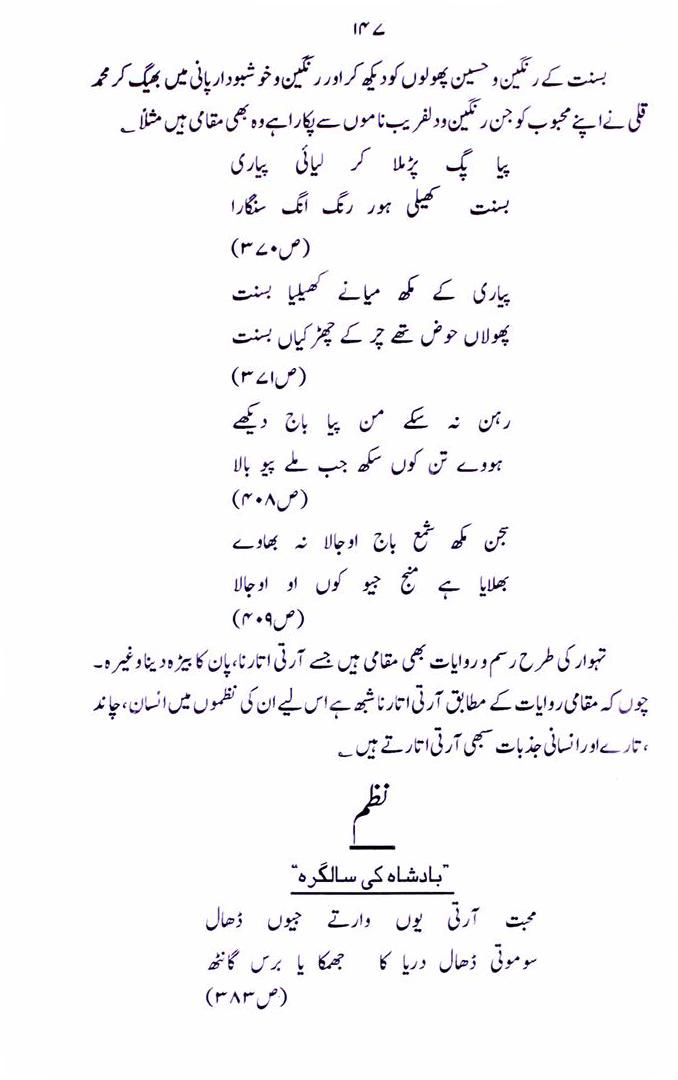 ۱۴۷
بسنت کے رنگین و حسین پھولوں کو دیکھ کر اور رنگین و خوشبودار پانی میں بھیگ کر محمد
قلی نے اپنے محبوب کو جن رنگین و دلفریب ناموں سے پکارا ہے وہ بھی مقامی ہیں مثلاً ؎
پیا پگ پڑملا کر لیائی پیاری
بسنت کھیلی ہور رنگ انگ سنگارا
(ص۳۷۰)
پیاری کے مکھ میانے کھیلیا بسنت
پھولاں حوض تھے چر کے چھڑکیاں بسنت
(ص۳۷۱)
رہن نہ سکے من پیا باج دیکھے
ہووے تن کوں سکھ جب ملے پیو بالا
(ص۴۰۸)
سجن مکھ شمع باج اوجالا نہ بھاوے
بھلایا ہے منج جیو کوں او اوجالا
(ص۴۰۹)
تہوار کی طرح رسم و روایات بھی مقامی ہیں جسے آرتی اتارنا، پان کا بیڑہ دینا وغیرہ۔
چوں کہ مقامی روایات کے مطابق آرتی اتارنا شبھ ہے اس لیے ان کی نظموں میں انسان، چاند
، تارے اور انسانی جذبات سبھی آرتی اتارتے ہیں ؎
نظم
"بادشاہ کی سالگرہ"
محبت آرتی یوں وارتے جیوں ڈھال
سو موتی ڈھال دریا کا جھمکا یا برس گانٹھ
(ص۳۸۳)